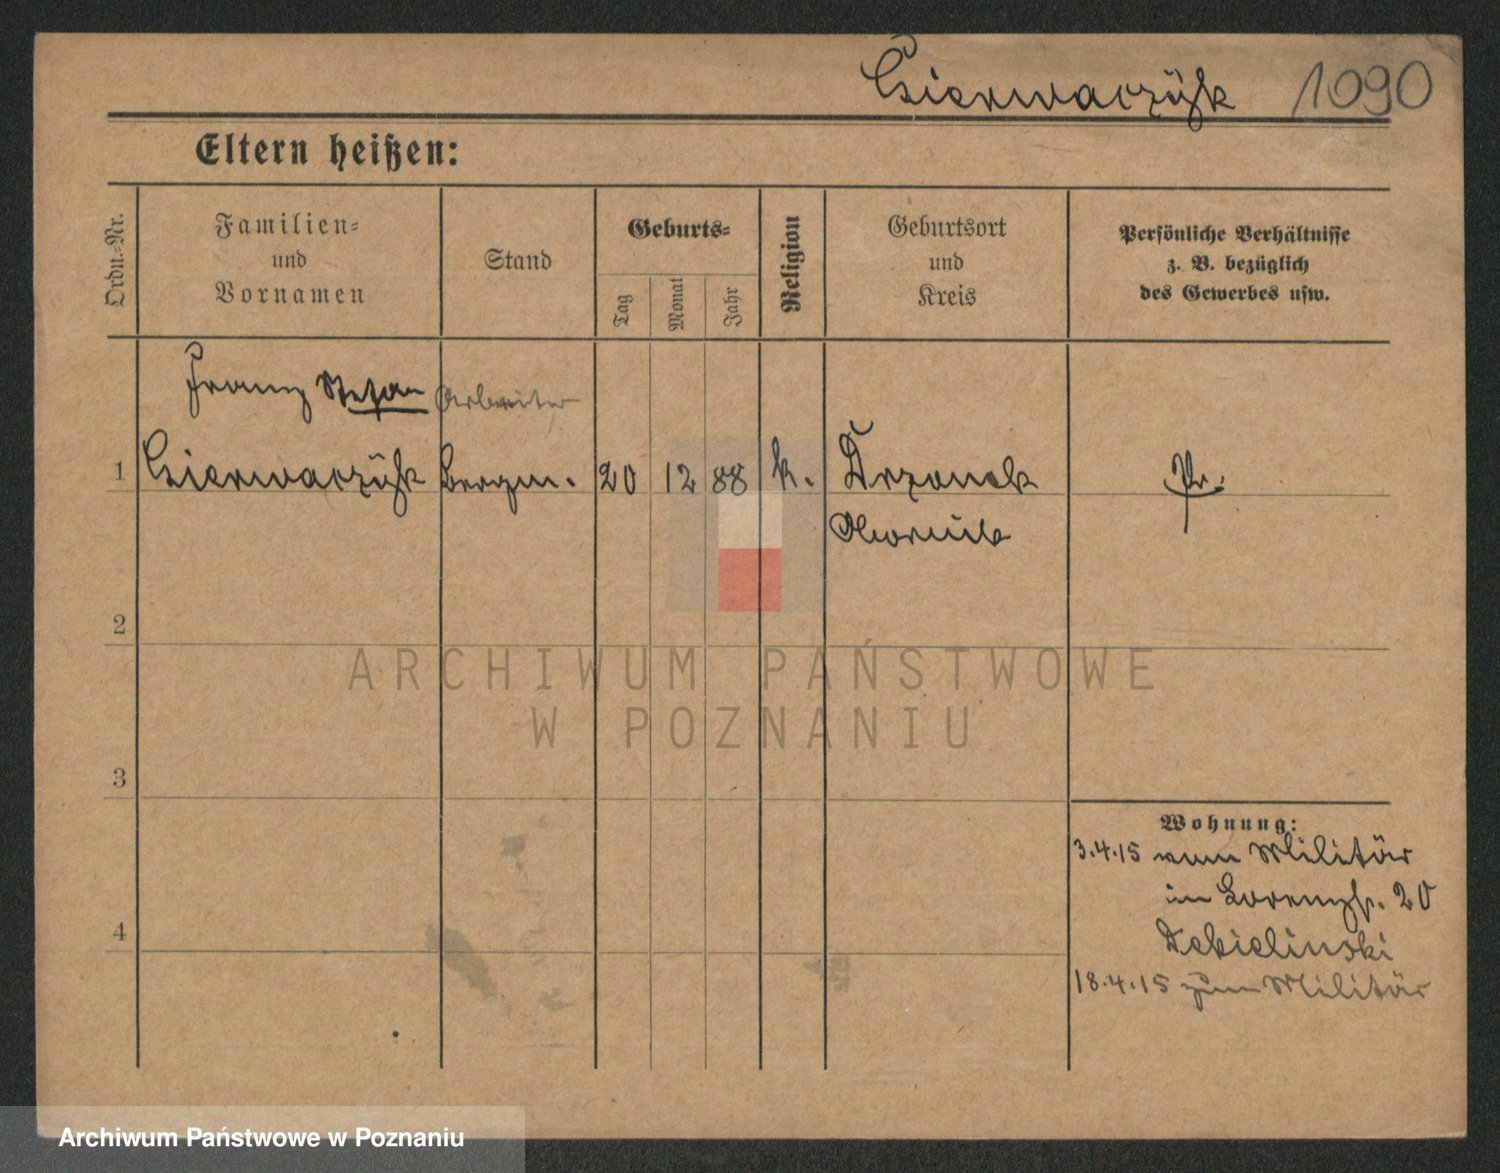 Czierwaczÿk 1090
Eltern heißen:
Ordn.-Nr.
Familien-
und
Vornamen
Stand
Geburts-
Tag
Monat
Jahr
Religion
Geburtsort
und
Kreis
Persönliche Verhältnisse
z. B. bezüglich
des Gewerbes usw.
Franz Stefan Arbeiter
1 Czierwaczÿk Bergm. 20 12 88 k. Drzonek Pr.
Obornik
2
3
4
Wohnung:
3.4.15 vom Militär
in Lorenzstr. 20
Debielinski
18.4.15 zum Militär
ARCHIWUM PAŃSTWOWE
W POZNANIU
Archiwum Państwowe w Poznaniu